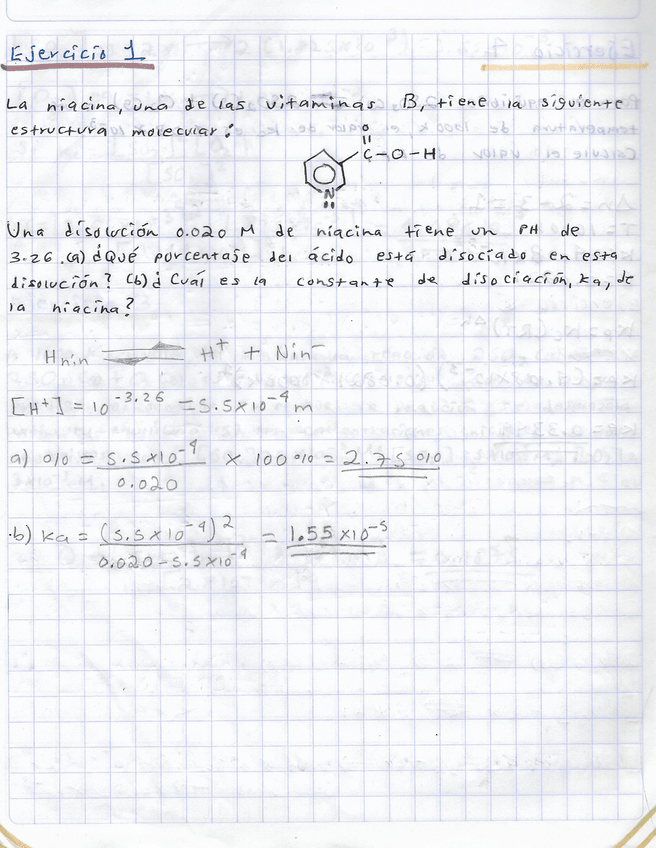 Ejercicio 1
La niacina, una de las vitaminas B, tiene la siguiente
estructura molecular:
O
C-O-H
N
Una disolución 0.020 M de niacina tiene un PH de
3.26. (a) ¿Qué porcentaje del ácido está disociado en esta
disolución? (b) ¿Cuál es la constante de disociación, ka, de
la niacina?
Hnin ⇌ H⁺ + Nin⁻
[H⁺] = 10^-3.26 = 5.5x10^-4 m
a) % = 5.5x10^-4 / 0.020 x 100% = 2.75%
b) ka = (5.5x10^-4)^2 / 0.020-5.5x10^-4 = 1.55x10^-5